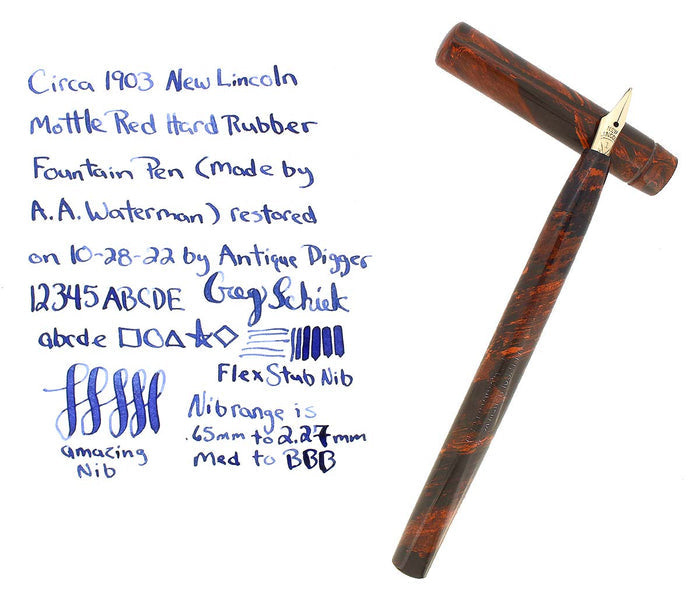 Circa 1903 New Lincoln
Mottle Red Hard Rubber
Fountain Pen (made by
A.A. Waterman) restored
on 10-28-22 by Antique Digger
12345 ABCDE Greg Schiek
abcde
Flex Stub Nib
amazing
Nib
Nib range is
.65mm to 2.27mm
Med to BBB